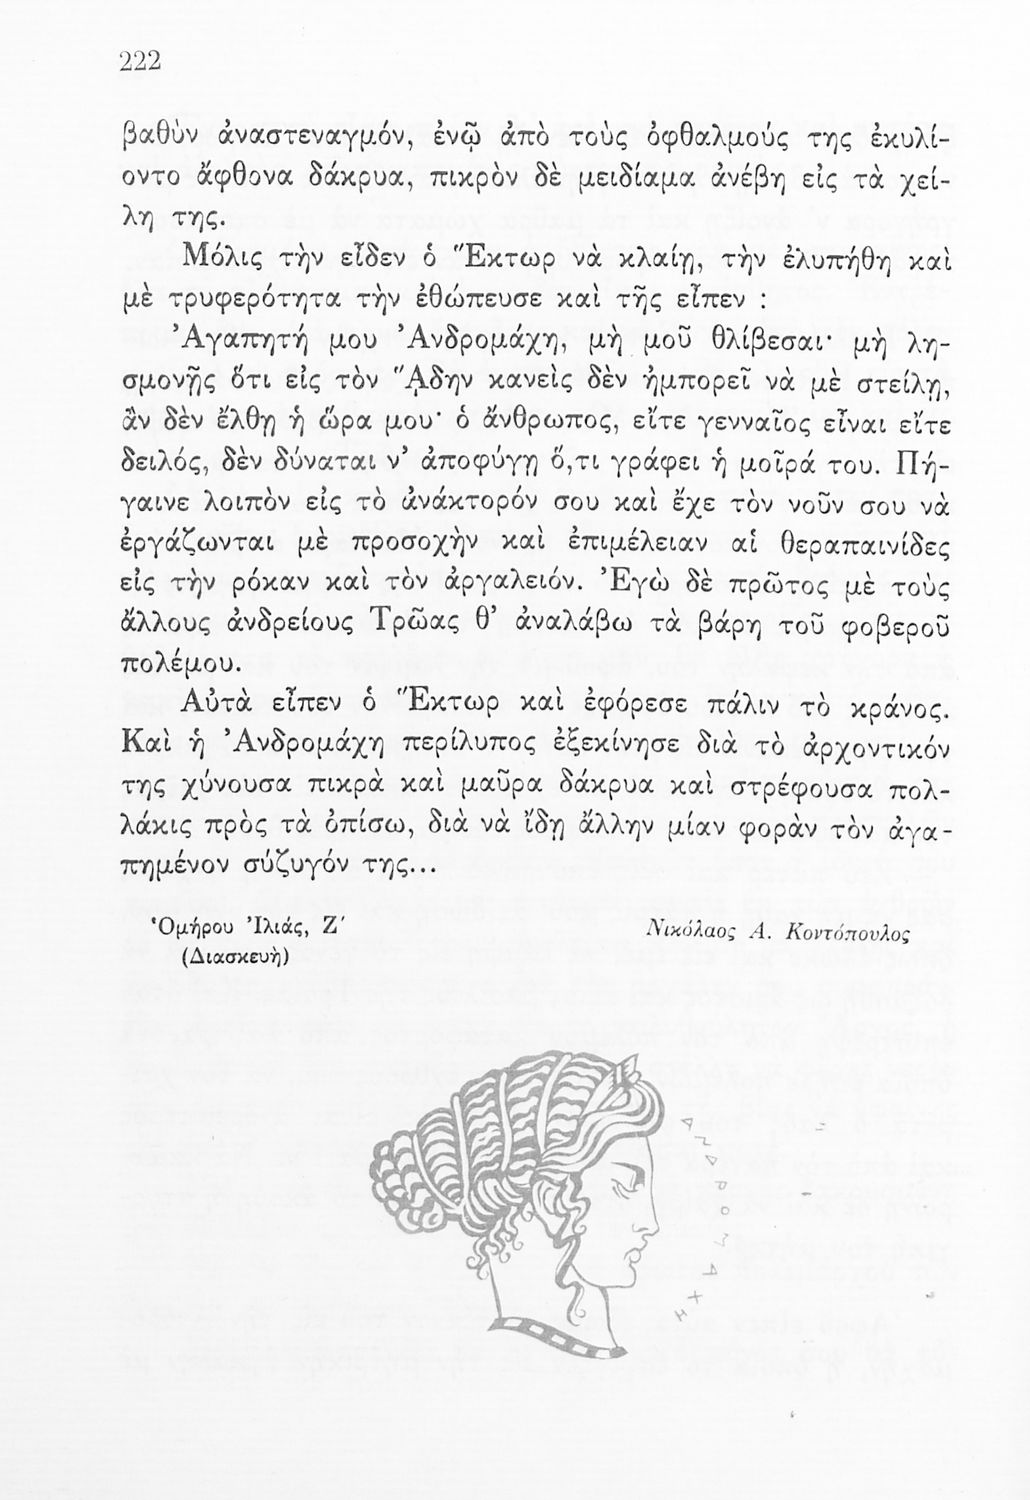 222
βαθὺν ἀναστεναγμόν, ἐνῷ ἀπὸ τοὺς ὀφθαλμούς της ἐκυλί-
οντο ἄφθονα δάκρυα, πικρὸν δὲ μειδίαμα ἀνέβη εἰς τὰ χεί-
λη της.
Μόλις τὴν εἶδεν ὁ Ἕκτωρ νὰ κλαίῃ, τὴν ἐλυπήθη καὶ
μὲ τρυφερότητα τὴν ἐθώπευσε καὶ τῆς εἶπεν :
Ἀγαπητή μου Ἀνδρομάχη, μὴ μοῦ θλίβεσαι· μὴ λη-
σμονῇς ὅτι εἰς τὸν ᾍδην κανεὶς δὲν ἠμπορεῖ νὰ μὲ στείλῃ,
ἂν δὲν ἔλθῃ ἡ ὥρα μου· ὁ ἄνθρωπος, εἴτε γενναῖος εἶναι εἴτε
δειλός, δὲν δύναται ν’ ἀποφύγῃ ὅ,τι γράφει ἡ μοῖρά του. Πή-
γαινε λοιπὸν εἰς τὸ ἀνάκτορόν σου καὶ ἔχε τὸν νοῦν σου νὰ
ἐργάζωνται μὲ προσοχὴν καὶ ἐπιμέλειαν αἱ θεραπαινίδες
εἰς τὴν ρόκαν καὶ τὸν ἀργαλειόν. Ἐγὼ δὲ πρῶτος μὲ τοὺς
ἄλλους ἀνδρείους Τρῶας θ’ ἀναλάβω τὰ βάρη τοῦ φοβεροῦ
πολέμου.
Αὐτὰ εἶπεν ὁ Ἕκτωρ καὶ ἐφόρεσε πάλιν τὸ κράνος.
Καὶ ἡ Ἀνδρομάχη περίλυπος ἐξεκίνησε διὰ τὸ ἀρχοντικόν
της χύνουσα πικρὰ καὶ μαῦρα δάκρυα καὶ στρέφουσα πολ-
λάκις πρὸς τὰ ὀπίσω, διὰ νὰ ἴδῃ ἄλλην μίαν φορὰν τὸν ἀγα-
πημένον σύζυγόν της...
Ὁμήρου Ἰλιάς, Ζ΄
(Διασκευὴ)
Νικόλαος Α. Κοντόπουλος
ΑΝΔΡΟΜΑΧΗ